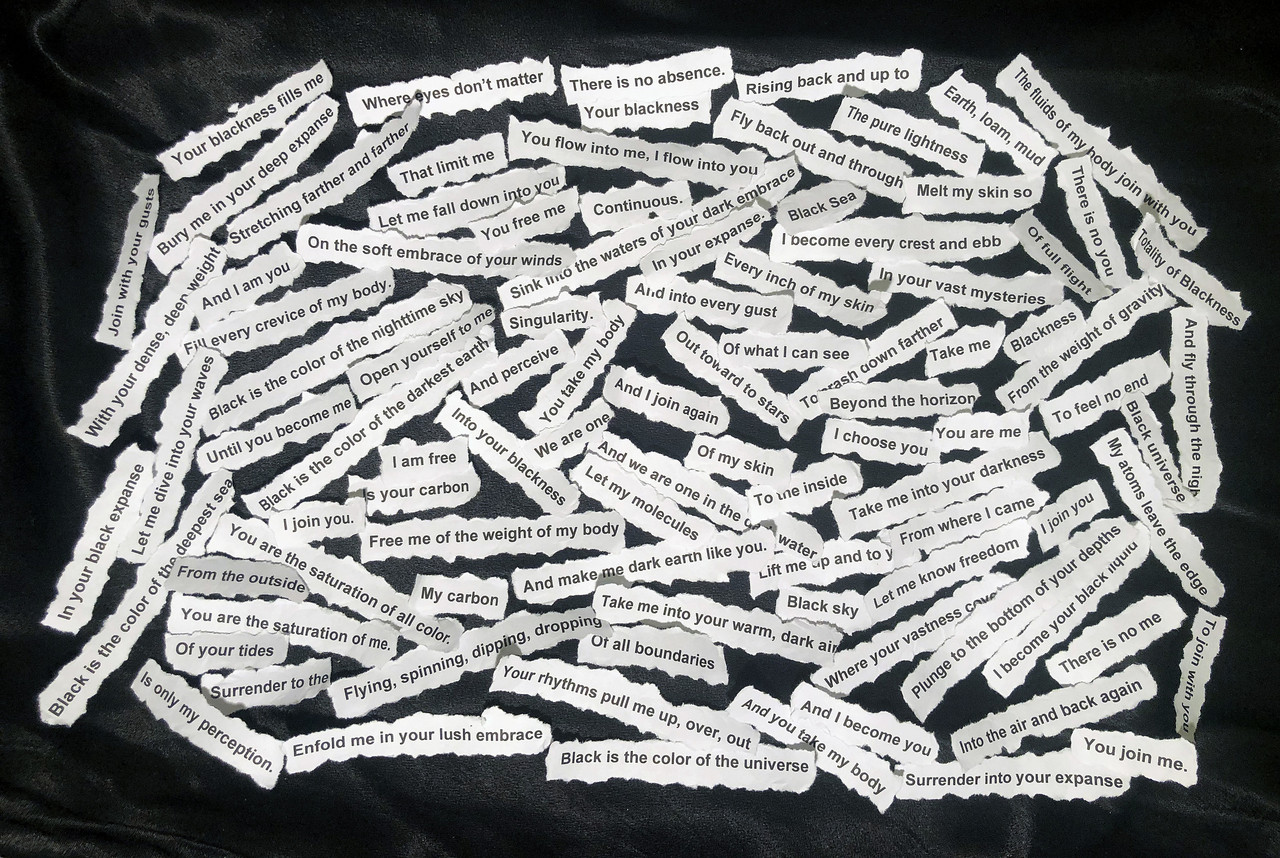 Your blackness fills me
Where eyes don't matter
There is no absence.
Rising back and up to
Earth, loam, mud
The fluids of my body join with you
Bury me in your deep expanse
Stretching farther and farther
Your blackness
Fly back out and through
The pure lightness
That limit me
You flow into me, I flow into you
Join with your gusts
Let me fall down into you
You free me
Continuous.
Sink into the waters of your dark embrace
In your expanse.
Black Sea
Melt my skin so
There is no you
Totality of Blackness
Of full flight
I become every crest and ebb
On the soft embrace of your winds
With your dense, deep weight
And I am you
Fill every crevice of my body.
Every inch of my skin
In your vast mysteries
And into every gust
Singularity.
Black is the color of the nighttime sky
Open yourself to me
Black is the color of the darkest earth
And perceive
You take my body
Out toward to stars
Of what I can see
crash down farther
Take me
Blackness
From the weight of gravity
And fly through the
Let me dive into your waves
Until you become me
And I join again
Beyond the horizon
To feel no end
Black universe
Into your blackness
We are one
I am free
Is your carbon
And we are one in the
Of my skin
I choose you
You are me
My atoms leave the edge
In your black expanse
Black is the color of the deepest sea
I join you.
Free me of the weight of my body
Let my molecules
To the inside
water
Take me into your darkness
From where I came
I join you
You are the saturation of all color.
From the outside
And make me dark earth like you.
Lift me up and to
Let me know freedom
My carbon
Black sky
You are the saturation of me.
Take me into your warm, dark air
Where your vastness
Plunge to the bottom of your depths
I become your black liquid
There is no me
To join with you
Of your tides
Flying, spinning, dipping, dropping
Of all boundaries
Is only my perception.
Surrender to the
Your rhythms pull me up, over, out
And you take my body
And I become you
Into the air and back again
Enfold me in your lush embrace
Black is the color of the universe
Surrender into your expanse
You join me.